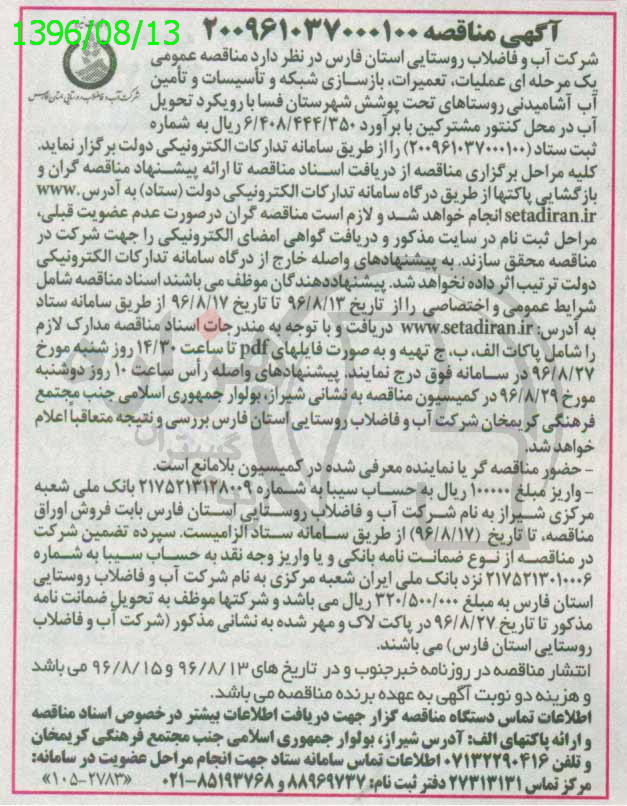 1396/08/13
آگهی مناقصه ۲۰۰۹۶۱۰۳۷۰۰۰۱۰۰
شرکت آب و فاضلاب روستایی استان فارس در نظر دارد مناقصه عمومی
یک مرحله ای عملیات، تعمیرات، بازسازی شبکه و تأسیسات و تأمین
آب آشامیدنی روستاهای تحت پوشش شهرستان فسا با رویکرد تحویل
شرکت آب و فاضلاب روستایی استان فارس
آب در محل کنتور مشترکین با برآورد ۶/۴۰۸/۴۴۴/۳۵۰ ریال به شماره
ثبت ستاد (۲۰۰۹۶۱۰۳۷۰۰۰۱۰۰) را از طریق سامانه تدارکات الکترونیکی دولت برگزار نماید.
کلیه مراحل برگزاری مناقصه از دریافت اسناد مناقصه تا ارائه پیشنهاد مناقصه گران و
بازگشایی پاکتها از طریق درگاه سامانه تدارکات الکترونیکی دولت (ستاد) به آدرس www.
setadiran.ir انجام خواهد شد و لازم است مناقصه گران درصورت عدم عضویت قبلی،
مراحل ثبت نام در سایت مذکور و دریافت گواهی امضای الکترونیکی را جهت شرکت در
مناقصه محقق سازند. به پیشنهادهای واصله خارج از درگاه سامانه تدارکات الکترونیکی
دولت ترتیب اثر داده نخواهد شد. پیشنهاددهندگان موظف می باشند اسناد مناقصه شامل
شرایط عمومی و اختصاصی را از تاریخ ۹۶/۸/۱۳ تا تاریخ ۹۶/۸/۱۷ از طریق سامانه ستاد
به آدرس: www.setadiran.ir دریافت و با توجه به مندرجات اسناد مناقصه مدارک لازم
را شامل پاکات الف، ب، ج تهیه و به صورت فایلهای pdf تا ساعت ۱۴/۳۰ روز شنبه مورخ
۹۶/۸/۲۷ در سامانه فوق درج نمایند. پیشنهادهای واصله رأس ساعت ۱۰ روز دوشنبه
مورخ ۹۶/۸/۲۹ در کمیسیون مناقصه به نشانی شیراز، بولوار جمهوری اسلامی جنب مجتمع
فرهنگی کریمخان شرکت آب و فاضلاب روستایی استان فارس بررسی و نتیجه متعاقباً اعلام
خواهد شد.
- حضور مناقصه گر یا نماینده معرفی شده در کمیسیون بلامانع است.
- واریز مبلغ ۱۰۰۰۰۰ ریال به حساب سیبا به شماره ۲۱۷۵۲۱۳۱۲۸۰۰۹ بانک ملی شعبه
مرکزی شیراز به نام شرکت آب و فاضلاب روستایی استان فارس بابت فروش اوراق
مناقصه، تا تاریخ (۹۶/۸/۱۷) از طریق سامانه ستاد الزامیست. سپرده تضمین شرکت
در مناقصه از نوع ضمانت نامه بانکی و یا واریز وجه نقد به حساب سیبا به شماره
۲۱۷۵۲۱۳۰۱۰۰۰۶ نزد بانک ملی ایران شعبه مرکزی به نام شرکت آب و فاضلاب روستایی
استان فارس به مبلغ ۳۲۰/۵۰۰/۰۰۰ ریال می باشد و شرکتها موظف به تحویل ضمانت نامه
مذکور تا تاریخ ۹۶/۸/۲۷ در پاکت لاک و مهر شده به نشانی مذکور (شرکت آب و فاضلاب
روستایی استان فارس) می باشند.
انتشار مناقصه در روزنامه خبرجنوب و در تاریخ های ۹۶/۸/۱۳ و ۹۶/۸/۱۵ می باشد
و هزینه دو نوبت آگهی به عهده برنده مناقصه می باشد.
اطلاعات تماس دستگاه مناقصه گزار جهت دریافت اطلاعات بیشتر درخصوص اسناد مناقصه
و ارائه پاکتهای الف: آدرس شیراز، بولوار جمهوری اسلامی جنب مجتمع فرهنگی کریمخان
و تلفن ۰۷۱۳۲۲۹۰۴۱۶ اطلاعات تماس سامانه ستاد جهت انجام مراحل عضویت در سامانه:
مرکز تماس ۲۷۳۱۳۱۳۱ دفتر ثبت نام: ۸۸۹۶۹۷۳۷ و ۸۵۱۹۳۷۶۸-۰۲۱ «۱۰۵-۲۷۸۳»